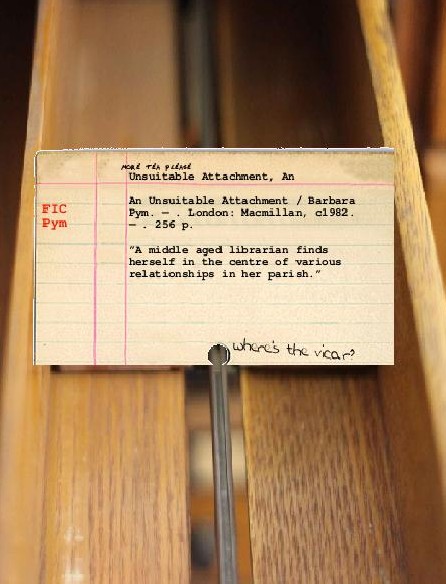 more tea please
Unsuitable Attachment, An
FIC
Pym
An Unsuitable Attachment / Barbara
Pym. — . London: Macmillan, c1982.
— . 256 p.
"A middle aged librarian finds
herself in the centre of various
relationships in her parish."
where's the vicar?